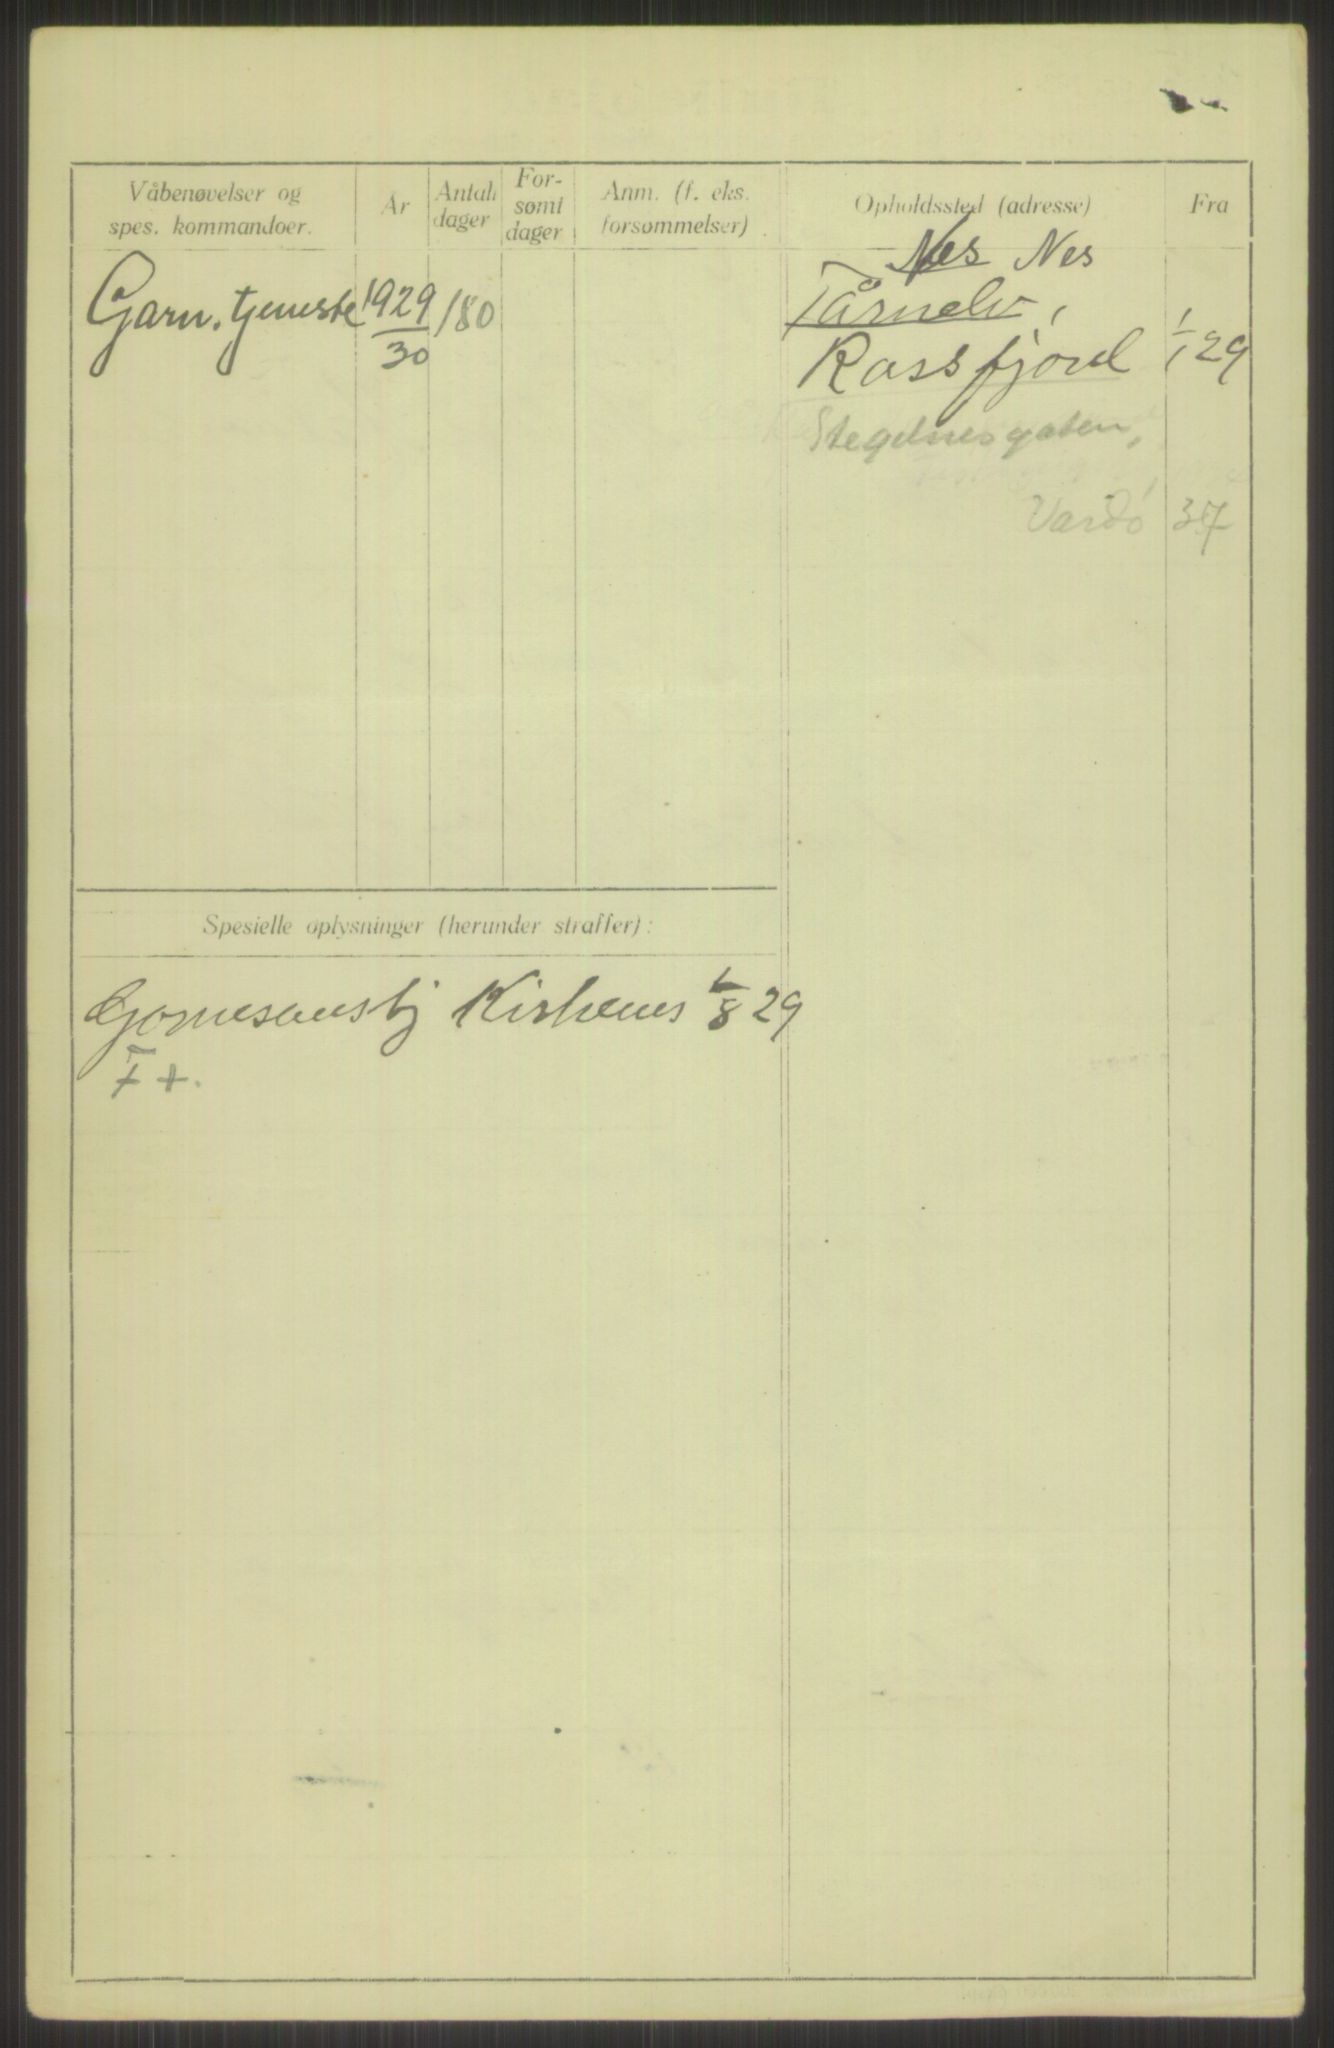 Våbenøvelser og
spes. kommandoer.
År
Antall
dager
For-
sømt
dager
Anm. (f. eks.
forsømmelser)
Opholdssted (adresse)
Fra
Garn. tjeneste 1929/30 180
Nes Nes
Tårnelv,
Rossfjord 1/1 29
Stegelnesgaten,
Vardö 37
Spesielle oplysninger (herunder straffer):
Kirkenes 1/8 29